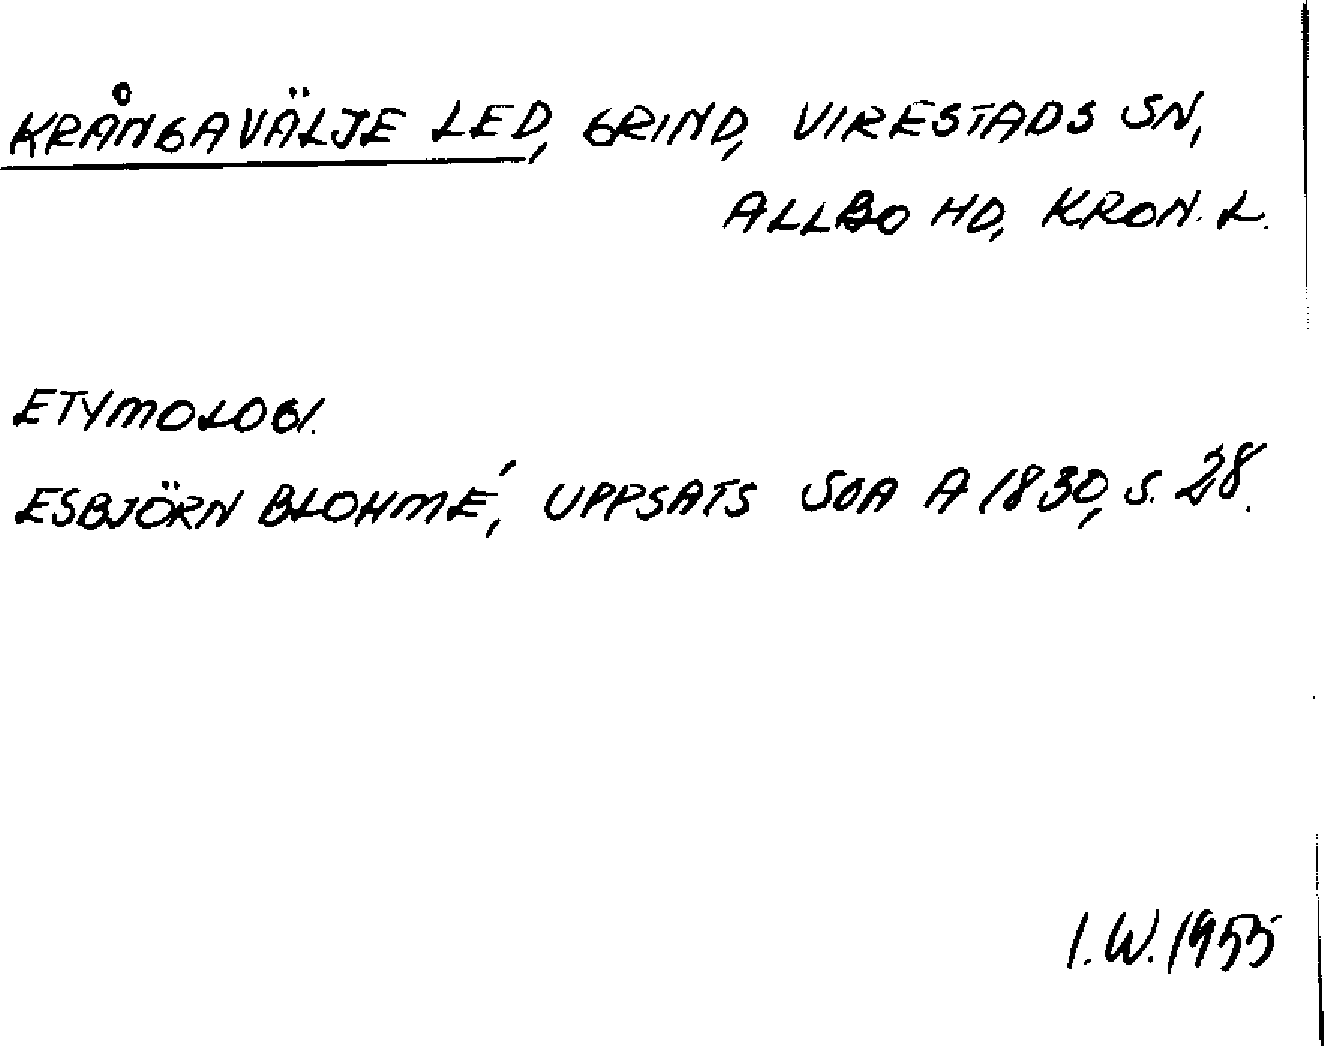 KRÅNGAVÄLJE LED, GRIND, VIRESTADS SN,
ALLBO HD, KRON. L.
ETYMOLOGI.
ESBJÖRN BLOHMÉ, UPPSATS SOA A 1830, S. 28.
I. W. 1955